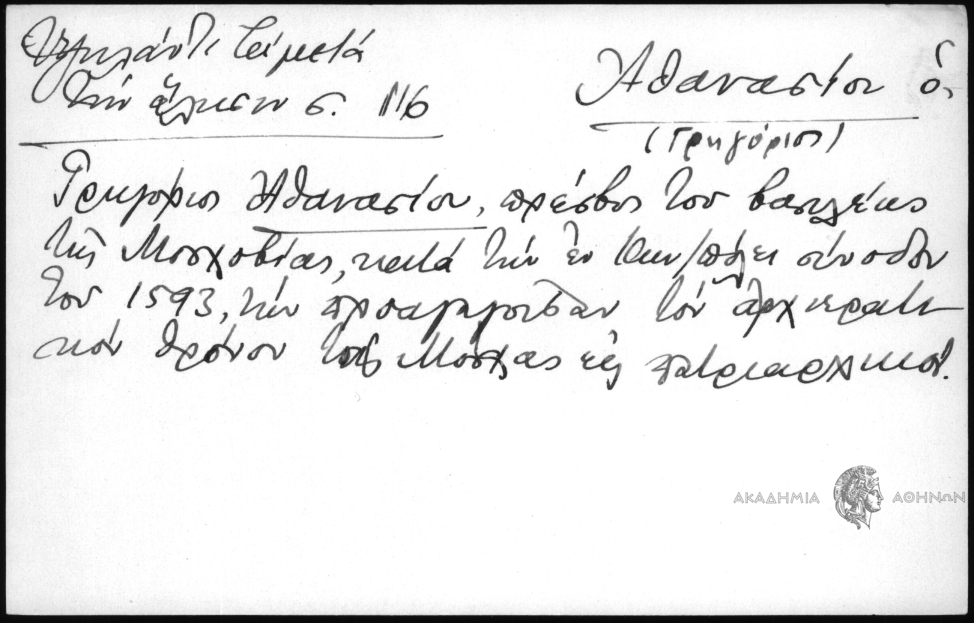 Ὑψηλάντι Τὰ μετὰ
τὴν ἅλωσιν σ. 116
Ἀθανασίου ὁ,
(Γρηγόριος)
Γρηγόριος Ἀθανασίου, πρέσβυς του βασιλέως
τῆς Μοσχοβίας, κατά τὴν ἐν Κων/πόλει σύνοδον
του 1593, τὴν προαγαγοῦσαν τὸν ἀρχιερατι-
κόν θρόνον τῆς Μόσχας εἰς πατριαρχικόν.
ΑΚΑΔΗΜΙΑ ΑΘΗΝΩΝ